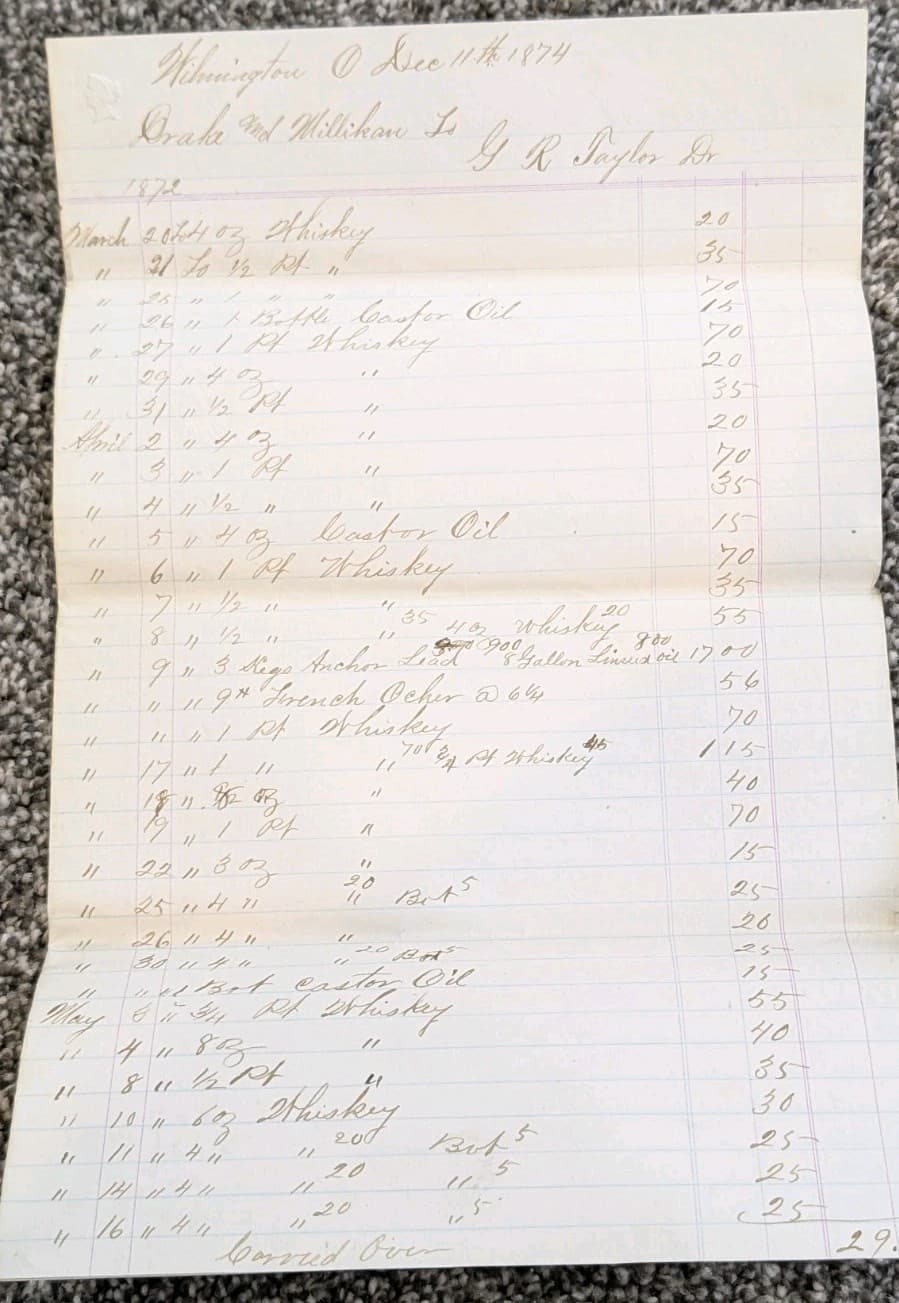 Wilmington O Dec 11th 1874
Drake and Millikan To
G R Taylor Dr
1872
March 20 To 4 oz Whiskey 20
" 21 To 1/2 Pt " 35
" 25 " 1 " " 70
" 26 " 1 Bottle Castor Oil 15
" 27 " 1 Pt Whiskey 70
" 29 " 4 oz " 20
" 31 " 1/2 Pt " 35
April 2 " 4 oz " 20
" 3 " 1 Pt " 70
" 4 " 1/2 " " 35
" 5 " 4 oz Castor Oil 15
" 6 " 1 Pt Whiskey 70
" 7 " 1/2 " " 35
" 8 " 1/2 " " 35 4 oz Whiskey 20 55
" 9 " 3 Kegs Anchor Lead 900 8 Gallon Linseed oil 800 17 00
" " " 9 # French Ocher @ 6 1/4 56
" " " 1 Pt Whiskey 70
" 17 " 1 " " 70 Pt Whiskey 45 1 15
" 18 " oz " 40
" 19 " 1 Pt " 70
" 22 " 3 oz " 15
" 25 " 4 " " 20 Bot 5 25
" 26 " 4 " " 20
" 30 " 4 " " 20 Bot 5 25
" " " Bot castor Oil 15
May 3 " 3/4 Pt Whiskey 55
" 4 " 8 oz " 40
" 8 " 1/2 Pt " 35
" 10 " 6 oz Whiskey 30
" 11 " 4 " " 20 Bot 5 25
" 14 " 4 " " 20 " 5 25
" 16 " 4 " " 20 " 5 25
Carried Over 29.